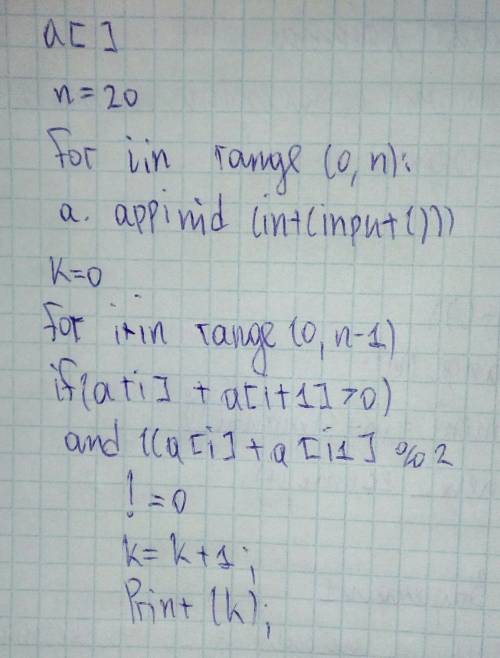 a[]
n=20
for iin range (0, n):
a. appinid (in+(inpu+()))
k=0
for i+in range (0, n-1)
if(a+i] + a[i+1]>0)
and ((a[i]+a[i1] % 2
!=0
k=k+1;
Prin+ (k);